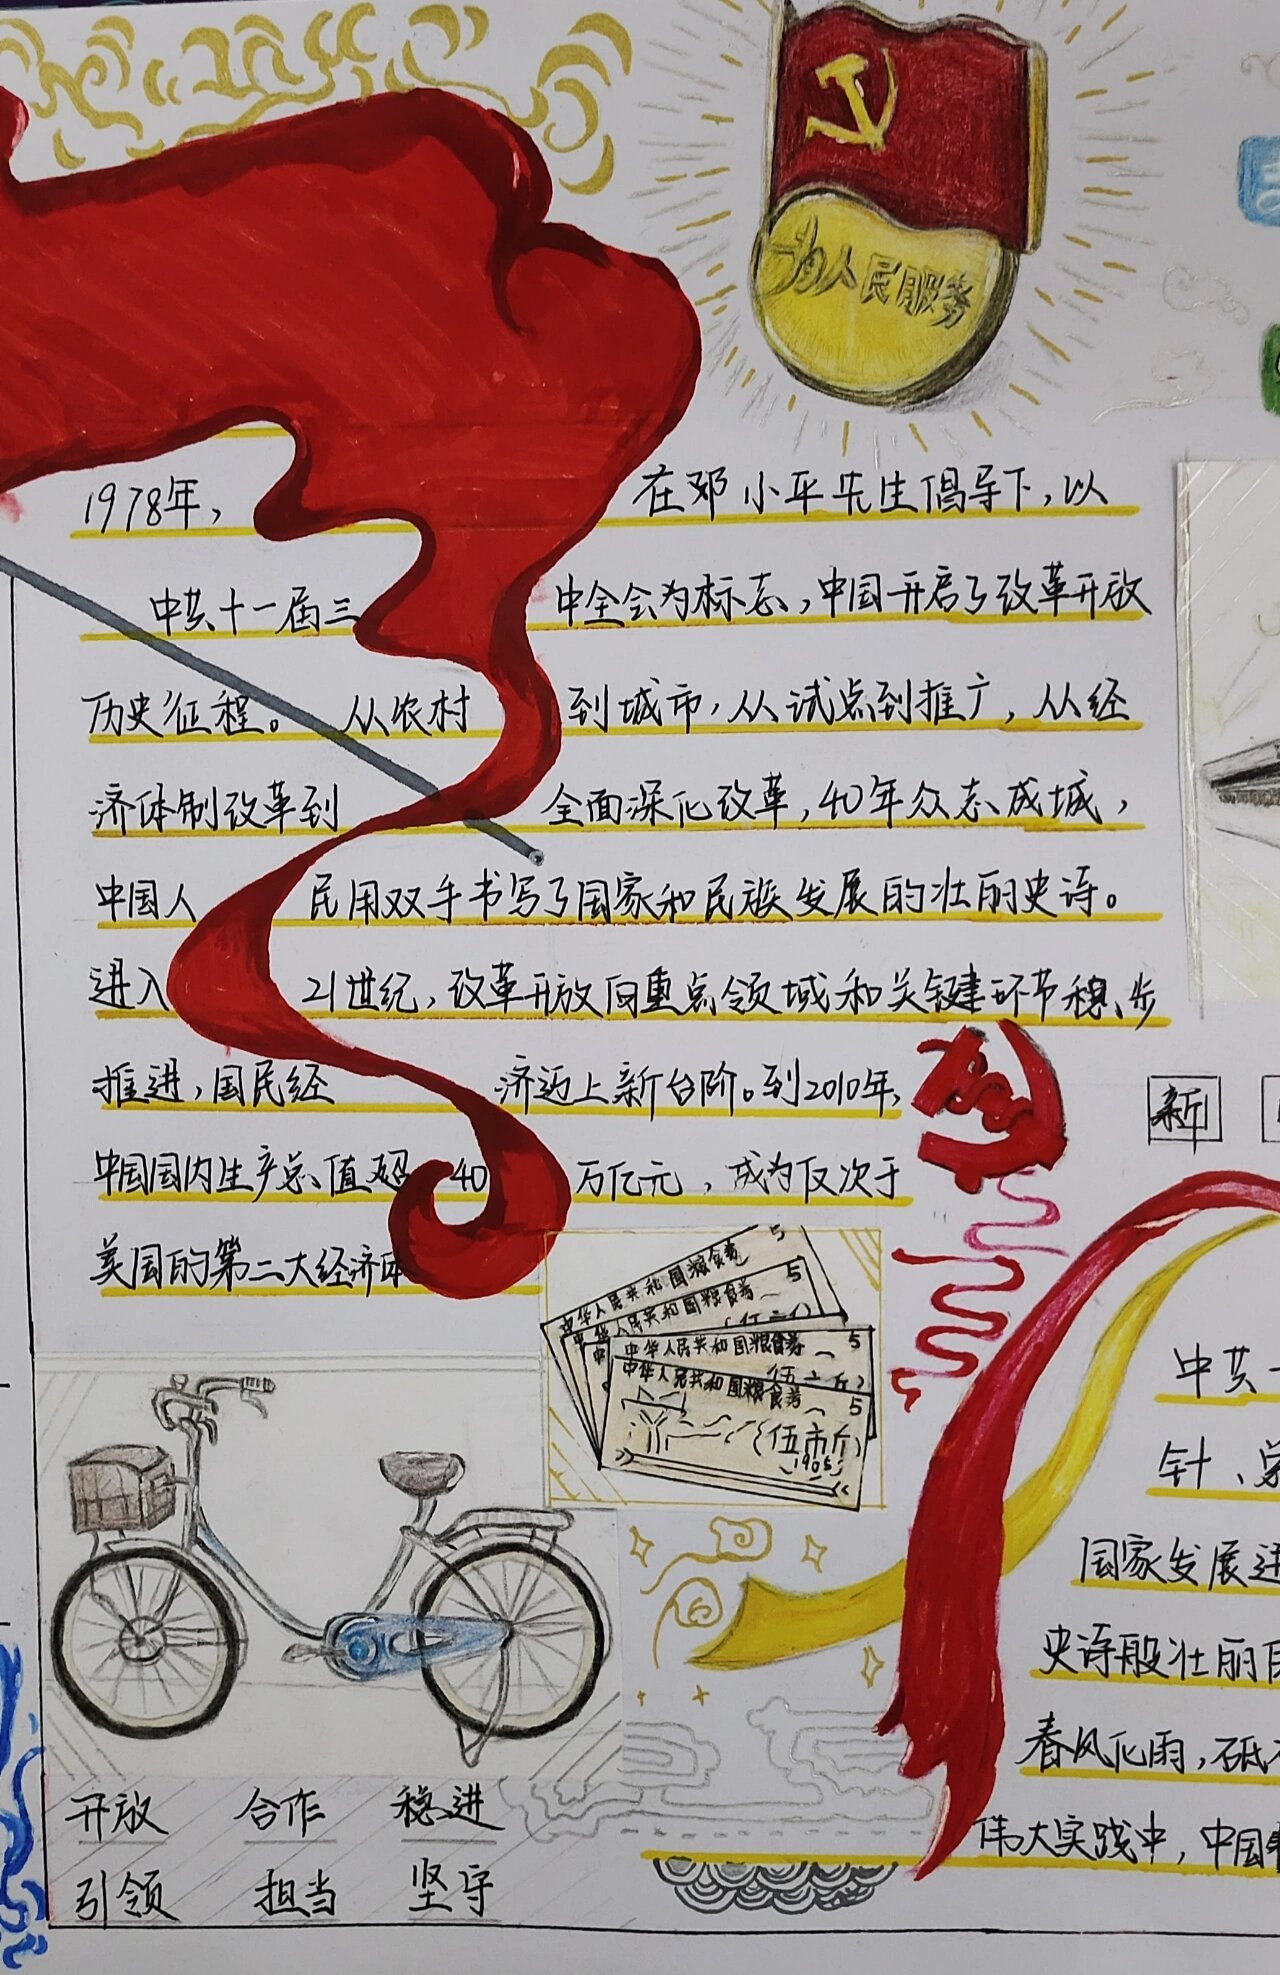 为人民服务
1978年，在邓小平先生倡导下，以
中共十一届三中全会为标志，中国开启了改革开放
历史征程。从农村到城市，从试点到推广，从经
济体制改革到全面深化改革，40年众志成城，
中国人民用双手书写了国家和民族发展的壮丽史诗。
进入21世纪，改革开放向重点领域和关键环节稳步
推进，国民经济迈上新台阶。到2010年，
中国国内生产总值超40万亿元，成为仅次于
美国的第二大经济体
中华人民共和国粮食券 5
中华人民共和国粮食券 5
中华人民共和国粮食券 5
中华人民共和国粮食券 5
（伍市斤）
新
中共十
针、
国家发展进
史诗般壮丽
春风化雨，砥
伟大实践中，中国
开放 合作 稳进
引领 担当 坚守